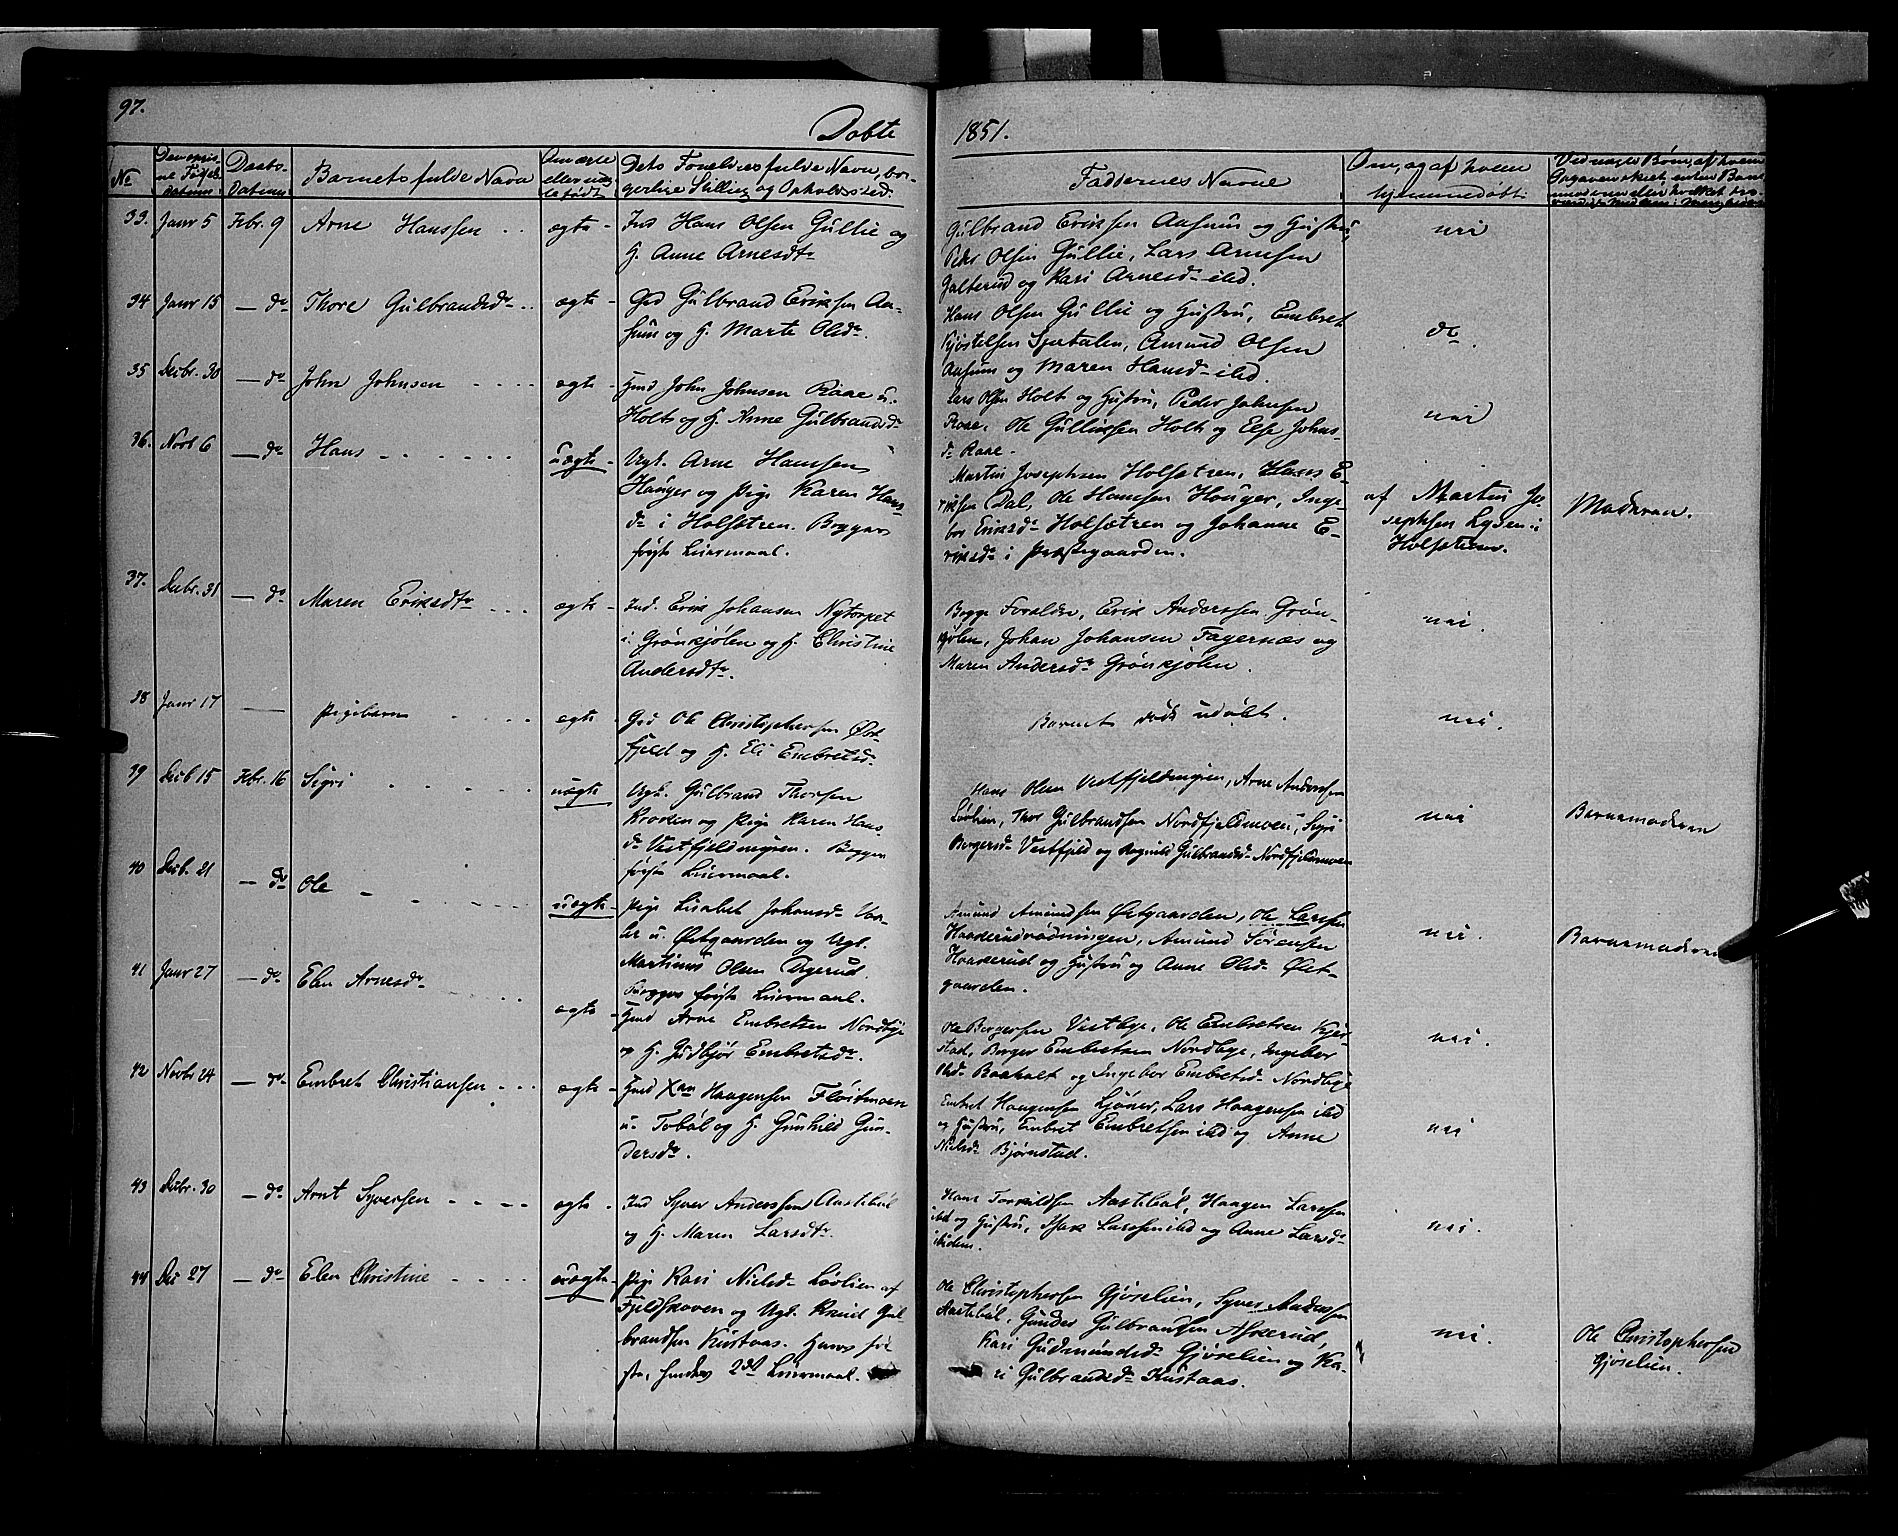 97.
Døbte
1851.
No
Barnets fulde Navn
Dets Forældres fulde Navn, bor-
gerlige Stilling og Opholdssted.
Faddernes Navne
Om, og af hvem
hjemmedøbt
33. Janr 5 Febr. 9 Arne Hanssen ægte Ind Hans Olsen Gullie og
H. Anne Arnesdtr
Gulbrand Eriksen Aasum og Hustru,
Peder Olsen Gullie, Lars Arnesen
Galterud og Kari Arnesdr ibd.
nei
34 Janr 15 do Thore Gulbrandsdr ægte Grd Gulbrand Eriksen Aa-
sum og H. Marte Olsdr.
Hans Olsen Gullie og Hustru, Embret
Kjøstelsen Sjætalen, Amund Olsen
Aasum og Maren Hansdr ibd.
do
35 Decbr. 30 do John Johnsen ægte Hmd John Johnsen Raae u.
Holt og H. Anne Gulbrandsdr
Lars Olsen Holt og Hustru, Peder Johnsen
Raae, Ole Gulliksen Holt og Else Johns-
dr Raae.
nei
36. Novb 6 do Hans uægte Ugk. Arne Hanssen
Hauger og Pige Karen Hans-
dr i Holsætren. Begges
første Leiermaal.
Martin Josephsen Holsætren, Hans E-
riksen Dal, Ole Hanssen Hauger, Inge-
bor Eriksdr Holsætren og Johanne E-
riksdr i Præstegaarden.
af Martin Jo-
sephsen Lysen i
Holsætren.
Moderen.
37. Decbr. 31 do Maren Eriksdtr ægte Ind. Erik Johansen Nytorpet
i Grønkjølen og H. Christine
Andersdtr.
Begge Forældre, Erik Anderssen Grøn-
kjølen, Johan Johansen Fagernæs og
Maren Andersdr Grønkjølen.
nei.
38 Janr 17 Pigebarn ægte Grd Ole Christophersen Øst-
fjeld og H. Eli Embretsdr
Barnet døde udøbt.
nei.
39 Decb 15 Febr. 16 Sigri uægte Ugk. Gulbrand Thorsen
Kroken og Pige Karen Hans-
dr Vestfjeldmyren. Begges
første Leiermaal.
Hans Olsen Vestfjeldmyren, Arne Anderssen
Løvlien, Thor Gulbrandsen Nordfjeldmoen, Sigri
Borgersdr Vestfjeld og Ragnild Gulbrandsdr Nordfjeldmoen
nei
Barnemoderen
40 Decb. 21 do Ole uægte Pige Lisabet Johansdr Vaa-
ler u. Østgaarden og Ugk.
Martinus Olsen Dyerud.
Begges første Leiermaal.
Amund Amundsen Østgaarden, Ole Larsen
Haaderudrødningen, Amund Sørensen
Haaderud og Hustru og Anne Olsdr Øst-
gaarden.
nei.
Barnemoderen
41 Janr 27 do Elen Arnesdr ægte Hmd Arne Embretsen Nordbye
og H. Gudbjør Embretsdr.
Ole Borgersen Vestbye, Ole Embretsen Kjer-
stad, Borger Embretsen Nordbye, Ingebor
Olsdr Baaholt og Ingebor Embretsdr Nordbye
nei.
42 Novbr 24 do Embret Christiansen ægte Hmd Xan Haagensen Fløitmoen
u. Tobøl og H. Gunhild Gun-
dersdr.
Embret Haagensen Ljøner, Lars Haagensen ibd
og Hustru, Embret Embretsen ibd og Anne
Nielsdr Bjørnstad.
nei
43 Decbr. 30 do Arnt Syversen ægte Ind Syver Anderssen Aastebøl
og H. Maren Larsdtr.
Hans Torkildsen Aastebøl, Haagen Larssen
ibd og Hustru, Isak Larssen ibd og Anne Larsdr
ibidem.
nei.
44 Dec 27 do Elen Christine uægte Pige Kari Nielsdr Løvlien af
Fjeldskoven og Ugk. Knud Gul-
brandsen Kustaas. Hans før-
ste, hendes 2det Leiermaal.
Ole Christophersen Gjøselien, Syver Andersen
Aastebøl, Gunder Gulbrandsen Askerud,
Kari Gudmundsdr Gjøselien og Ka-
ri Gulbrandsdr Kustaas.
nei.
Ole Christophersen
Gjøselien.